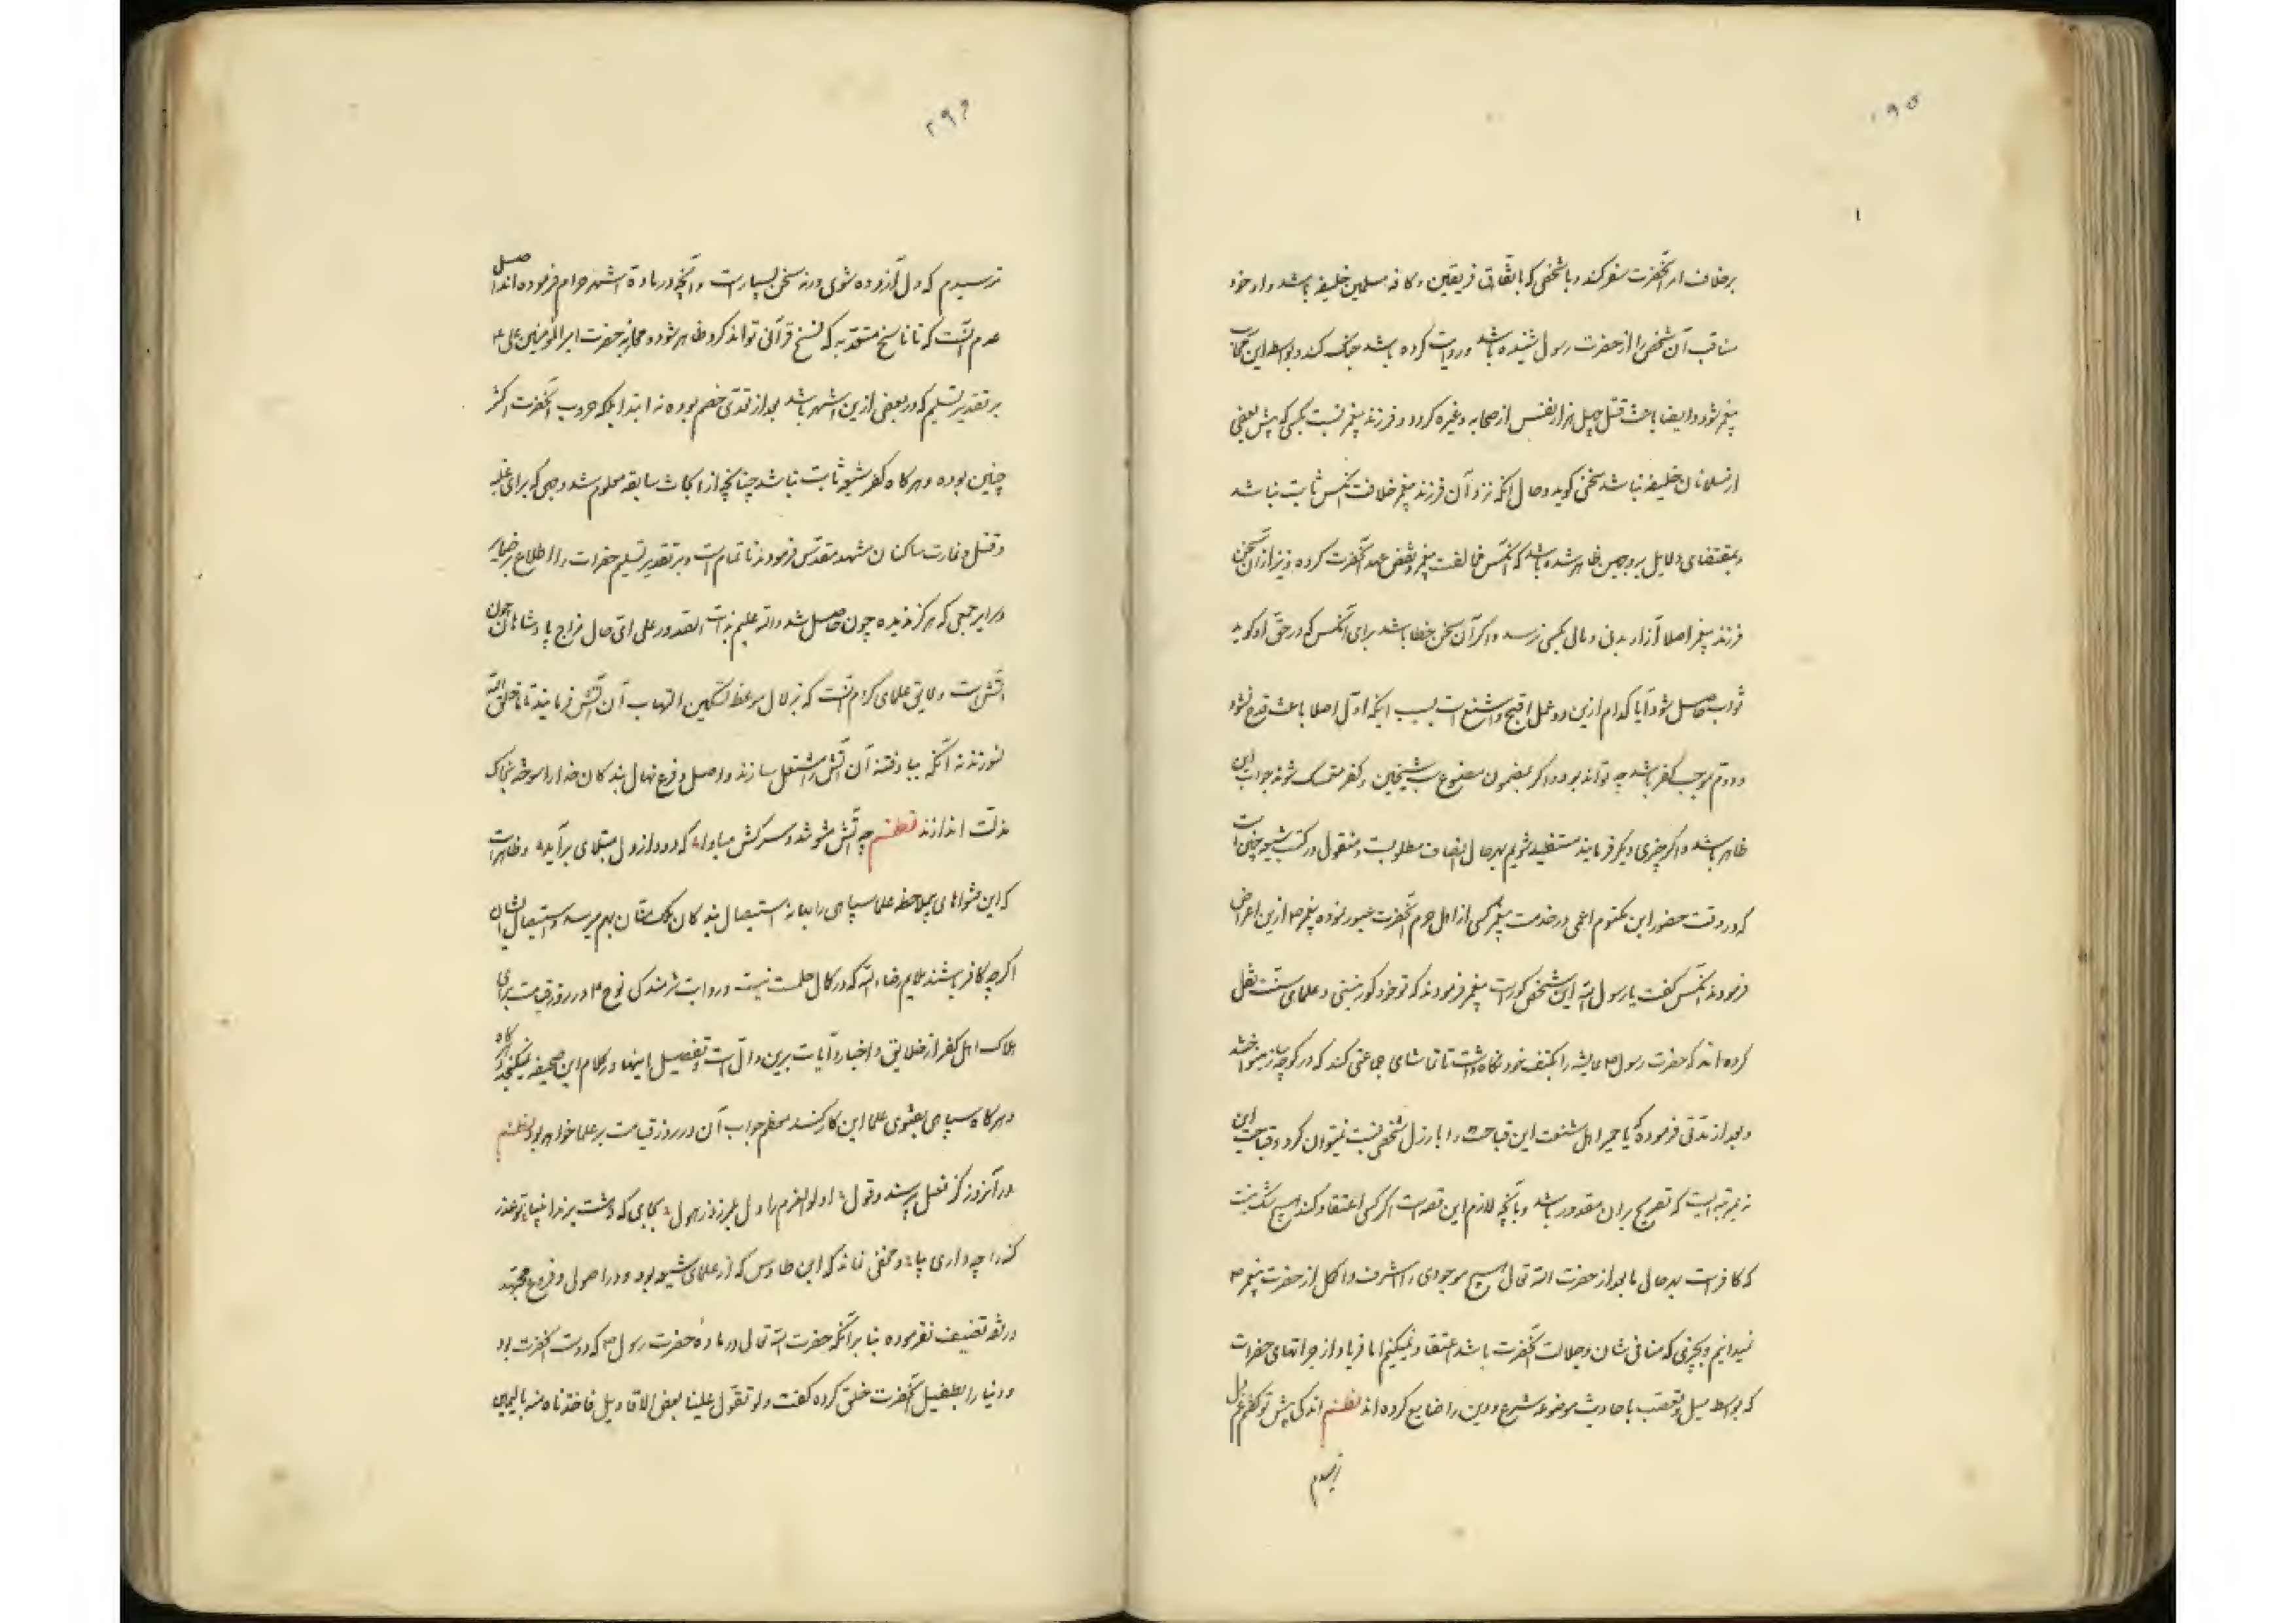 ۲۹۵
برخلاف امر آنحضرت سفر کند و با شخصی که باتفاق فریقین و کافه مسلمین خلیفه باشد و او خود
مناقب آن شخص را از حضرت رسول شنیده باشد و روایت کرده باشد جنک کند و بواسطه این
پیغمبر شود و ایضا باعث قتل چهل هزار نفس از صحابه و غیره کردد و فرزند پیغمبر نسبت بکسی که پیش بعضی
از مسلمانان خلیفه نباشد سخنی کوید و حال آنکه نزد آن فرزند پیغمبر خلافت آنکس ثابت نباشد
و بمقتضای دلایل بر وجهین ظاهر شده باشد که آنکس مخالفت پیغمبر و نقض عهد آنحضرت کرده و نیز از آن سخن
فرزند پیغمبر اصلا آزار بدنی و مالی بکسی نرسد و اکر آن سخن خطا باشد برای آنکس که در حق او کوید
ثواب حاصل شود آیا کدام ازین دو عمل اقبح و اشنع است بسبب اینکه اول اصلا باعث قدح نشود
و دوم موجب کفر باشد چه تواند بود و اکر بمضمون سب شیخین و کفر متمسک شوند جواب این
ظاهر باشد و اکر چیزی دیکر فرمایند مستفید شویم بهرحال انصاف مطلوبست و منقول در کتب شیعه چنین است
که در وقت حضور ابن مکتوم اعمی در خدمت پیغمبر کسی از اهل حرم آنحضرت عبور نموده پیغمبر ص ازین اعراض
فرمودند آنکس کفت یا رسول الله این شخص کور است پیغمبر فرمودند که تو خود کور نیستی و علمای سنت نقل
کرده اند که حضرت رسول ص عایشه را بکتف خود نکاه داشت تا تماشای جماعتی کند که در کوچه ساز مینواختند
و بعد از مدتی فرموده که یا حمیرا هل شبعت این قباحت را بارذل شخصی نسبت نمیتوان کرد و قباحت این
نه بمرتبه ایست که تصریح بر آن مقدور باشد و بآنچه لازم این قصه است اکر کسی اعتقاد کند هیچ شک نیست
که کافر است بهرحال ما بعد از حضرت الله تعالی هیچ موجودی را اشرف و اکمل از حضرت پیغمبر ص
نمیدانیم و بچیزی که منافی شان و جلالت آنحضرت باشد اعتقاد نمیکنیم اما فریاد از جراتهای حضرات
که بواسطه میل و تعصب باحادیث موضوعه شرع و دین را ضایع کرده اند نظم اندکی پیش تو کفتم غم دل
ترسیدم
۲۹۶
ترسیدم که دل آزرده شوی ورنه سخن بسیار است و آنچه در ماده اشهر حرام فرموده اند اصل
عدم آنست که تا ناسخ متعدبه که نسخ قرآنی تواند کرد ظاهر شود و محاربه حضرت امیر المومنین علی ع
بر تقدیر تسلیم که در بعضی ازین اشهر باشد بعد از تعدی خصم بوده نه ابتدا بلکه حروب آنحضرت اکثر
چنین بوده و هرکاه کفر شیعه ثابت نباشد چنانچه از ابحاث سابقه معلوم شد وجهی که برای غلبه
و قتل و غارت ساکنان مشهد مقدس فرمودند ناتمام است و بر تقدیر تسلیم حضرات را اطلاع بر ضمایر
و سرایر جمعی که هرکز ندیده چون حاصل شد والله علیم بذات الصدور علی ای حال مزاج پادشاهان چون
آتش است و لایق علمای کرام آنست که بزلال موعظه تسکین التهاب آن آتش فرمایند تا خلق الله
نسوزند نه آنکه بباد فتنه آن آتش را مشتعل سازند و اصل و فرع نهال بندکان خدا را سوخته بخاک
مذلت اندازند نظم چه آتش شد و سرکش مبادا که دود از دل مبتلای برآید و ظاهر است
که این فتواهای بیملاحظه علما سپاهی را بهانه استیصال بندکان ملک منان بهم میرسد و استیصال ایشان
اکرچه کافر باشند ملایم رضاء الله که در کمال حلمست نیست و روایت شرمندکی نوح ع در روز قیامت برای
هلاک اهل کفر از خلایق و اخبار و آیات برین دال است و تفصیل اینها در کلام این صحیفه نمیکنجد
و هرکاه سپاهی بفتوی علما این کار کنند معظم جواب آن در روز قیامت بر علما خواهد بود نظم
در آنروز کز فعل پرسند و قول اولوالعزم را دل بلرزد ز هول بجایی که دهشت برند انبیا تو عذر
کنه را چه داری بیا و مخفی نماند که ابن طاوس که از علمای شیعه بود و در اصول و فروع مجتهد
در فقه تصنیف نفرموده بنا بر آنکه حضرت الله تعالی در ماده حضرت رسول ص که دوست آنحضرت بود
و دنیا را بطفیل آنحضرت خلق کرده کفت ولو تقول علینا بعض الاقاویل لاخذنا منه بالیمین